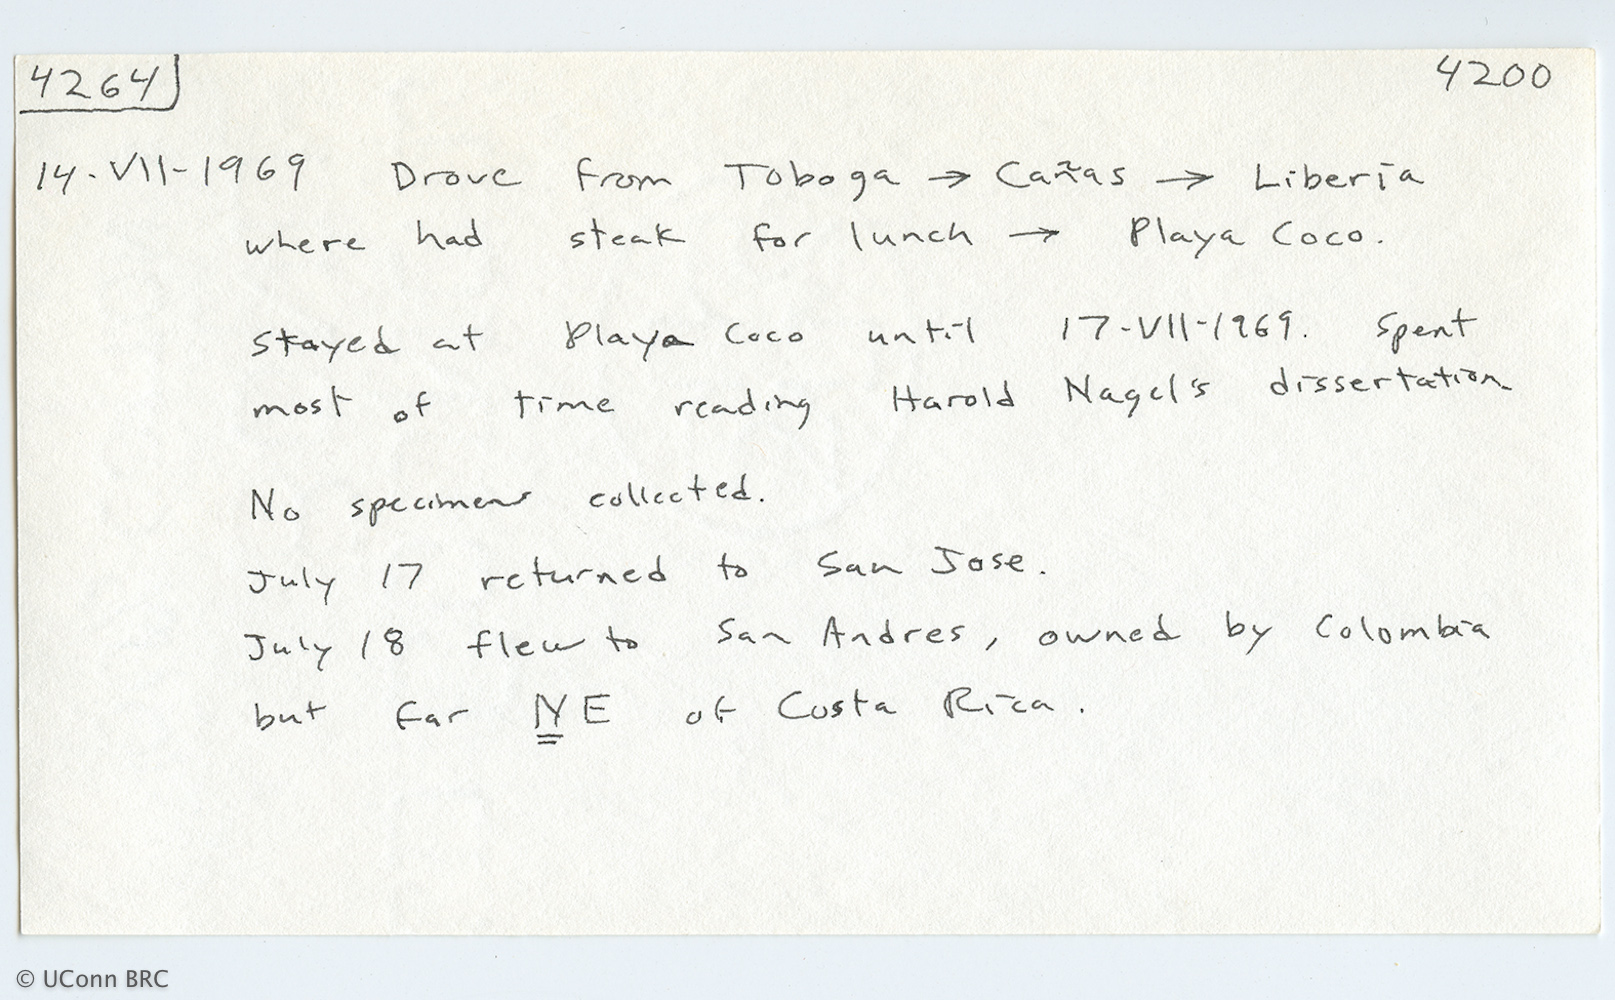 4264 4200
14-VII-1969 Drove from Toboga → Cañas → Liberia
where had steak for lunch → Playa Coco.
Stayed at Playa Coco until 17-VII-1969. Spent
most of time reading Harold Nagel's dissertation.
No specimens collected.
July 17 returned to San Jose.
July 18 flew to San Andres, owned by Colombia
but far NE of Costa Rica.
© UConn BRC